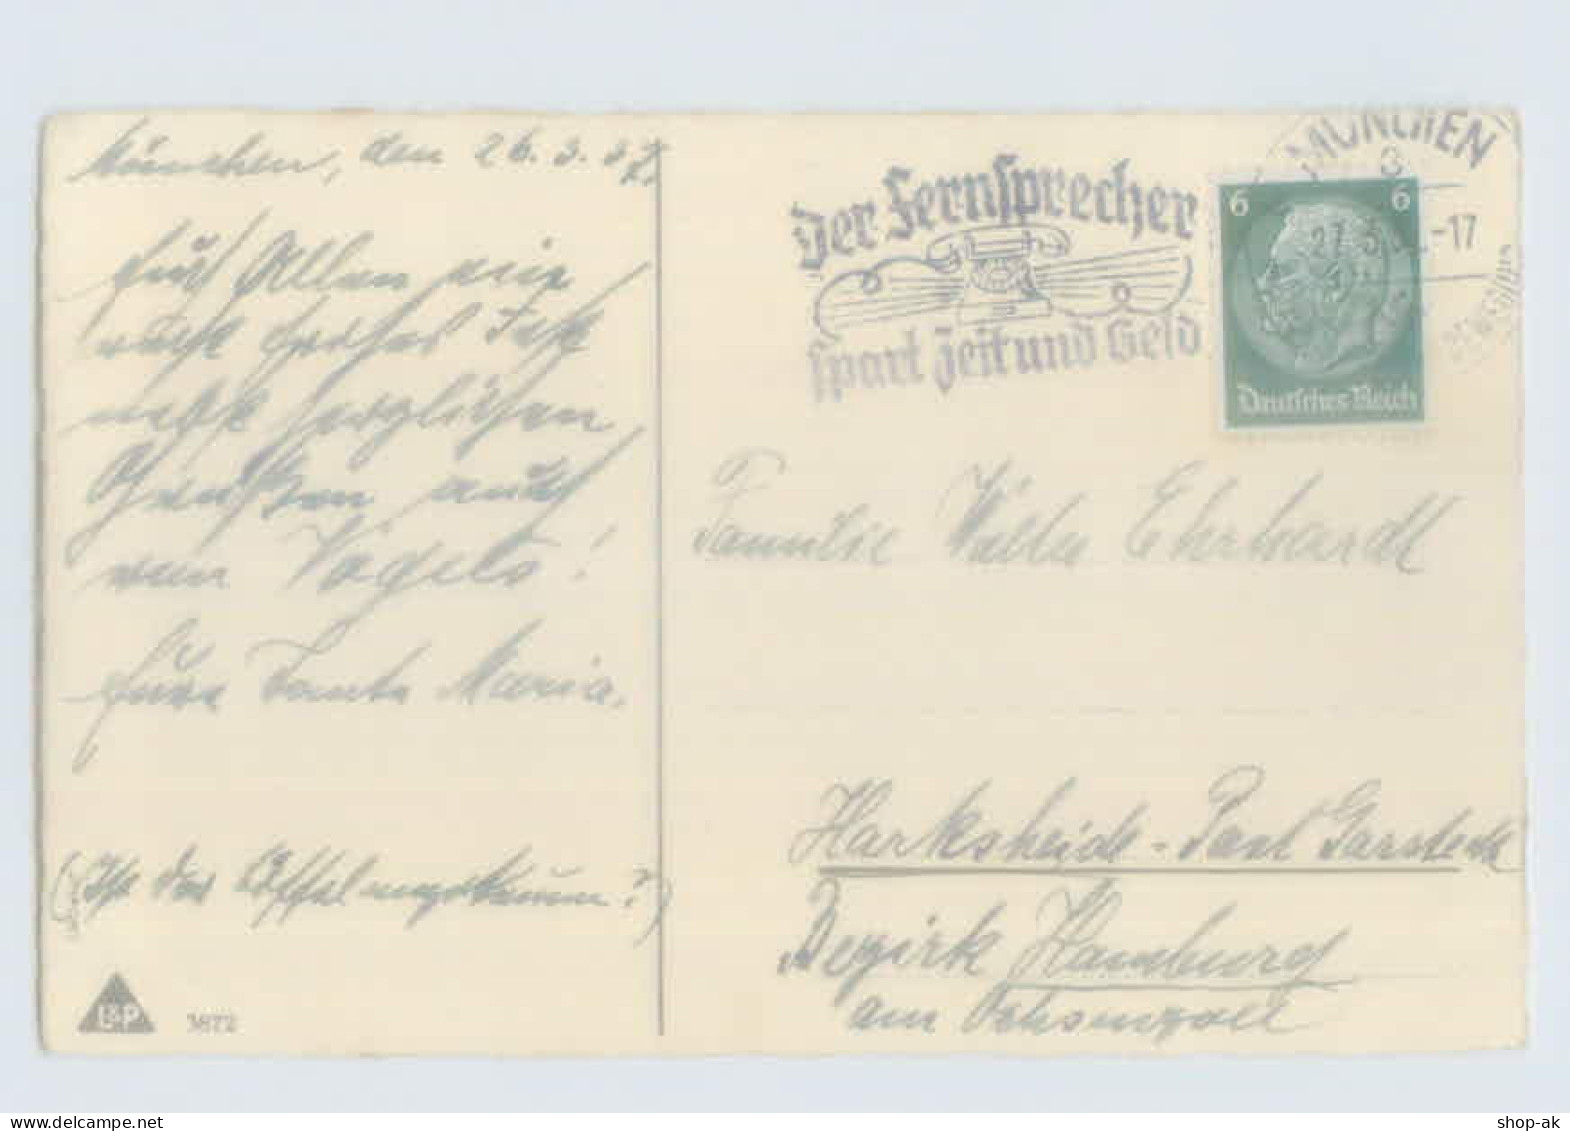 München, den 26.3.37.
Euch Allen ein
recht frohes Fest
nebst herzlichen
Grüßen auch
von Vögels!
Eure Tante Maria.
(Ist das Löffel angekommen?)
L&P
3872
Der Fernsprecher
spart Zeit und Geld
MÜNCHEN
3
-17
6 6
Deutsches Reich
Familie Ehrhardt
Harksheide - Post Garstedt
Bezirk Hamburg
am Ochsenzoll
shop-ak